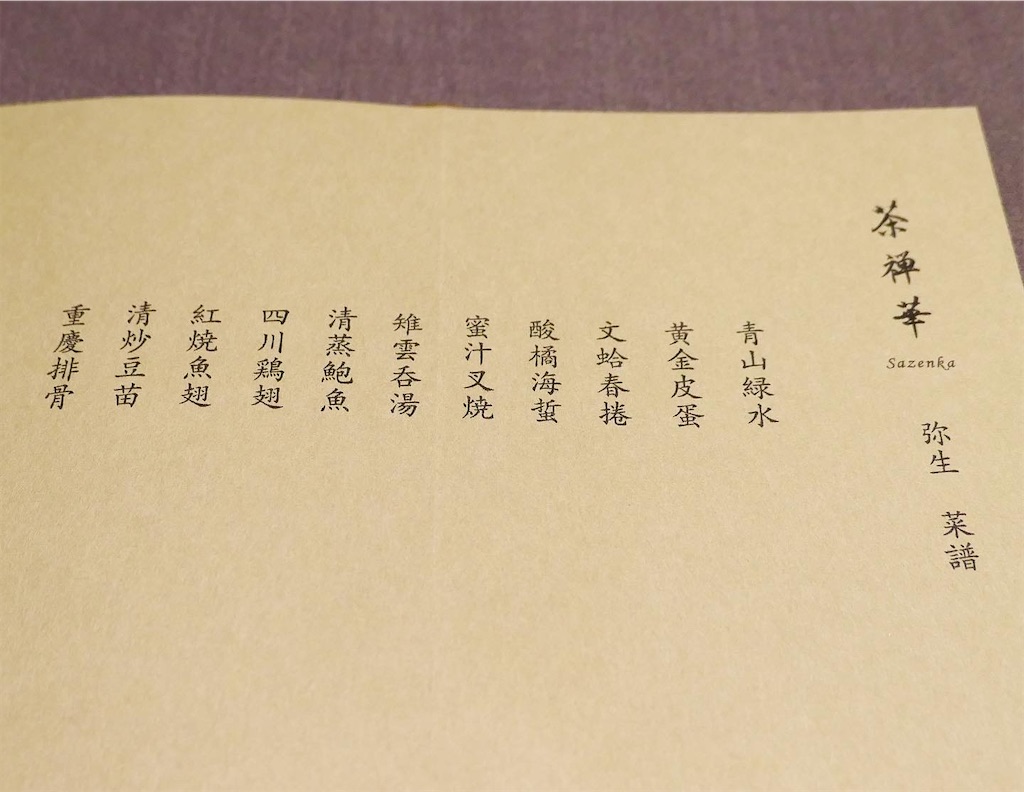 茶禅華
Sazenka
弥生 菜譜
青山緑水
黄金皮蛋
文蛤春捲
酸橘海蜇
蜜汁叉焼
雉雲呑湯
清蒸鮑魚
四川鶏翅
紅焼魚翅
清炒豆苗
重慶排骨